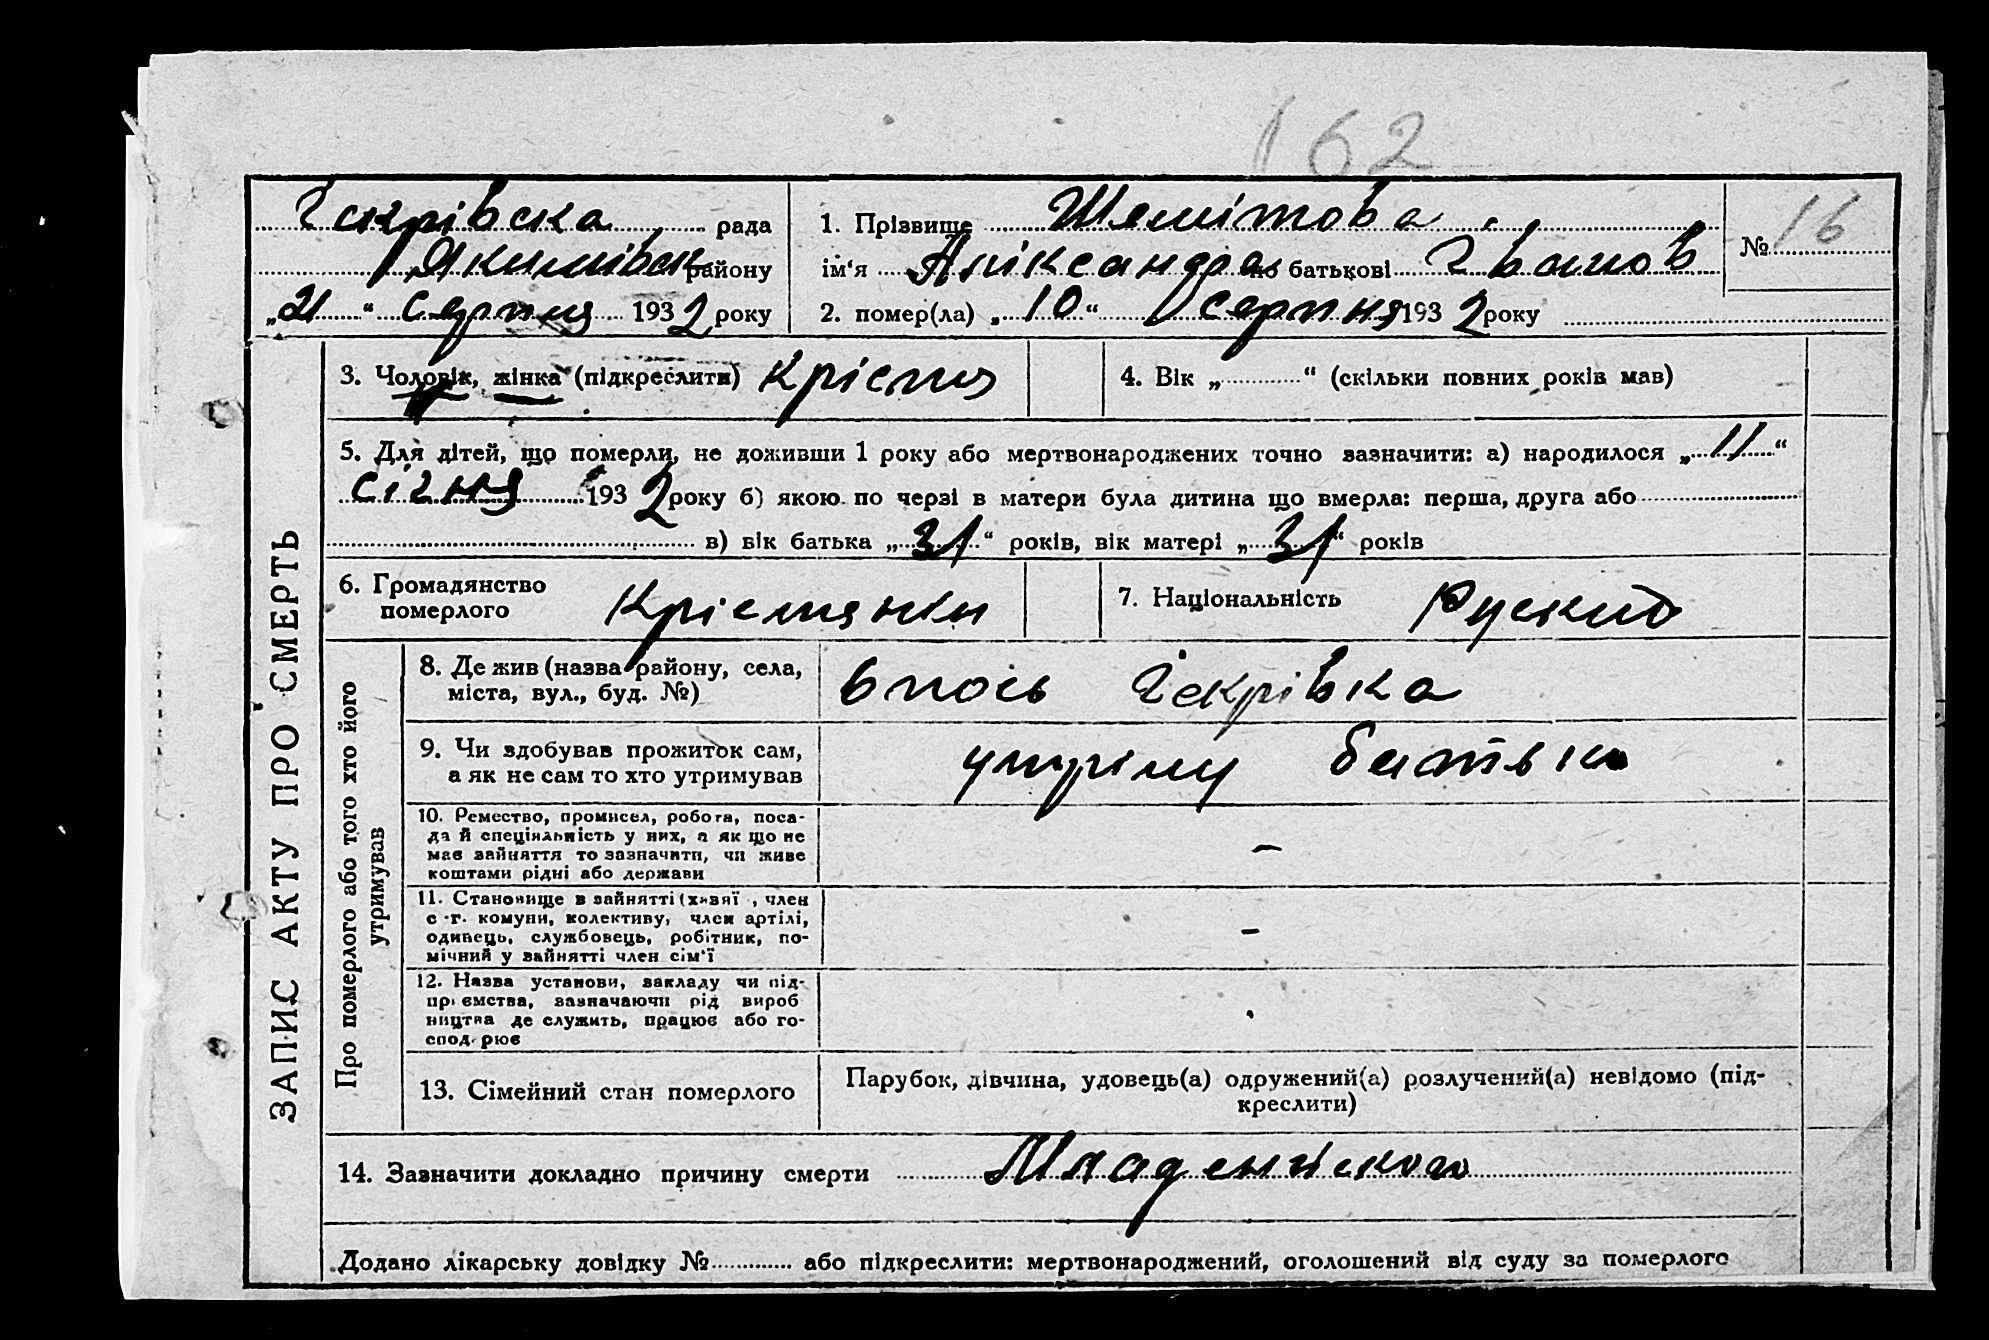 162
Іскрівска рада
Якимівск району
„21“ Серпня 1932 року
1. Прізвище Шемітова
ім‘я Аліксандра по батькові Іванов
2. помер(ла) „10“ Серпня 1932 року
№ 16
3. Чоловік, жінка (підкреслити)
4. Вік „ “ (скільки повних років мав)
5. Для дітей, що померли, не доживши 1 року або мертвонароджених точно зазначити: а) народилося „11“
січня 1932 року б) якою по черзі в матери була дитина що вмерла: перша, друга або
в) вік батька „31“ років, вік матері „31“ років
6. Громадянство
померлого
Крістянін
7. Національність Руский
ЗАПИС АКТУ ПРО СМЕРТЬ
Про померлого або того хто його
утримував
8. Де жив (назва району, села,
міста, вул., буд. №)
Іскрівка
9. Чи здобував прожиток сам,
а як не сам то хто утримував
утріму батька
10. Ремество, промисел, робота, поса-
да й спеціяльність у них, а як що не
має зайняття то зазначити, чи живе
коштами рідні або держави
–
11. Становище в зайнятті (хазяї , член
с -г. комуни, колективу, член артілі,
одинець, службовець, робітник, по-
мічний у зайнятті член сім‘ї
–
12. Назва установи, закладу чи під-
приємства, зазначаючи рід вироб
ництва де служить, працює або го-
сподарює
13. Сімейний стан померлого
Парубок, дівчина, удовець(а) одружений(а) розлучений(а) невідомо (під-
креслити)
14. Зазначити докладно причину смерти Младенческая
Додано лікарську довідку № або підкреслити: мертвонароджений, оголошений від суду за померлого